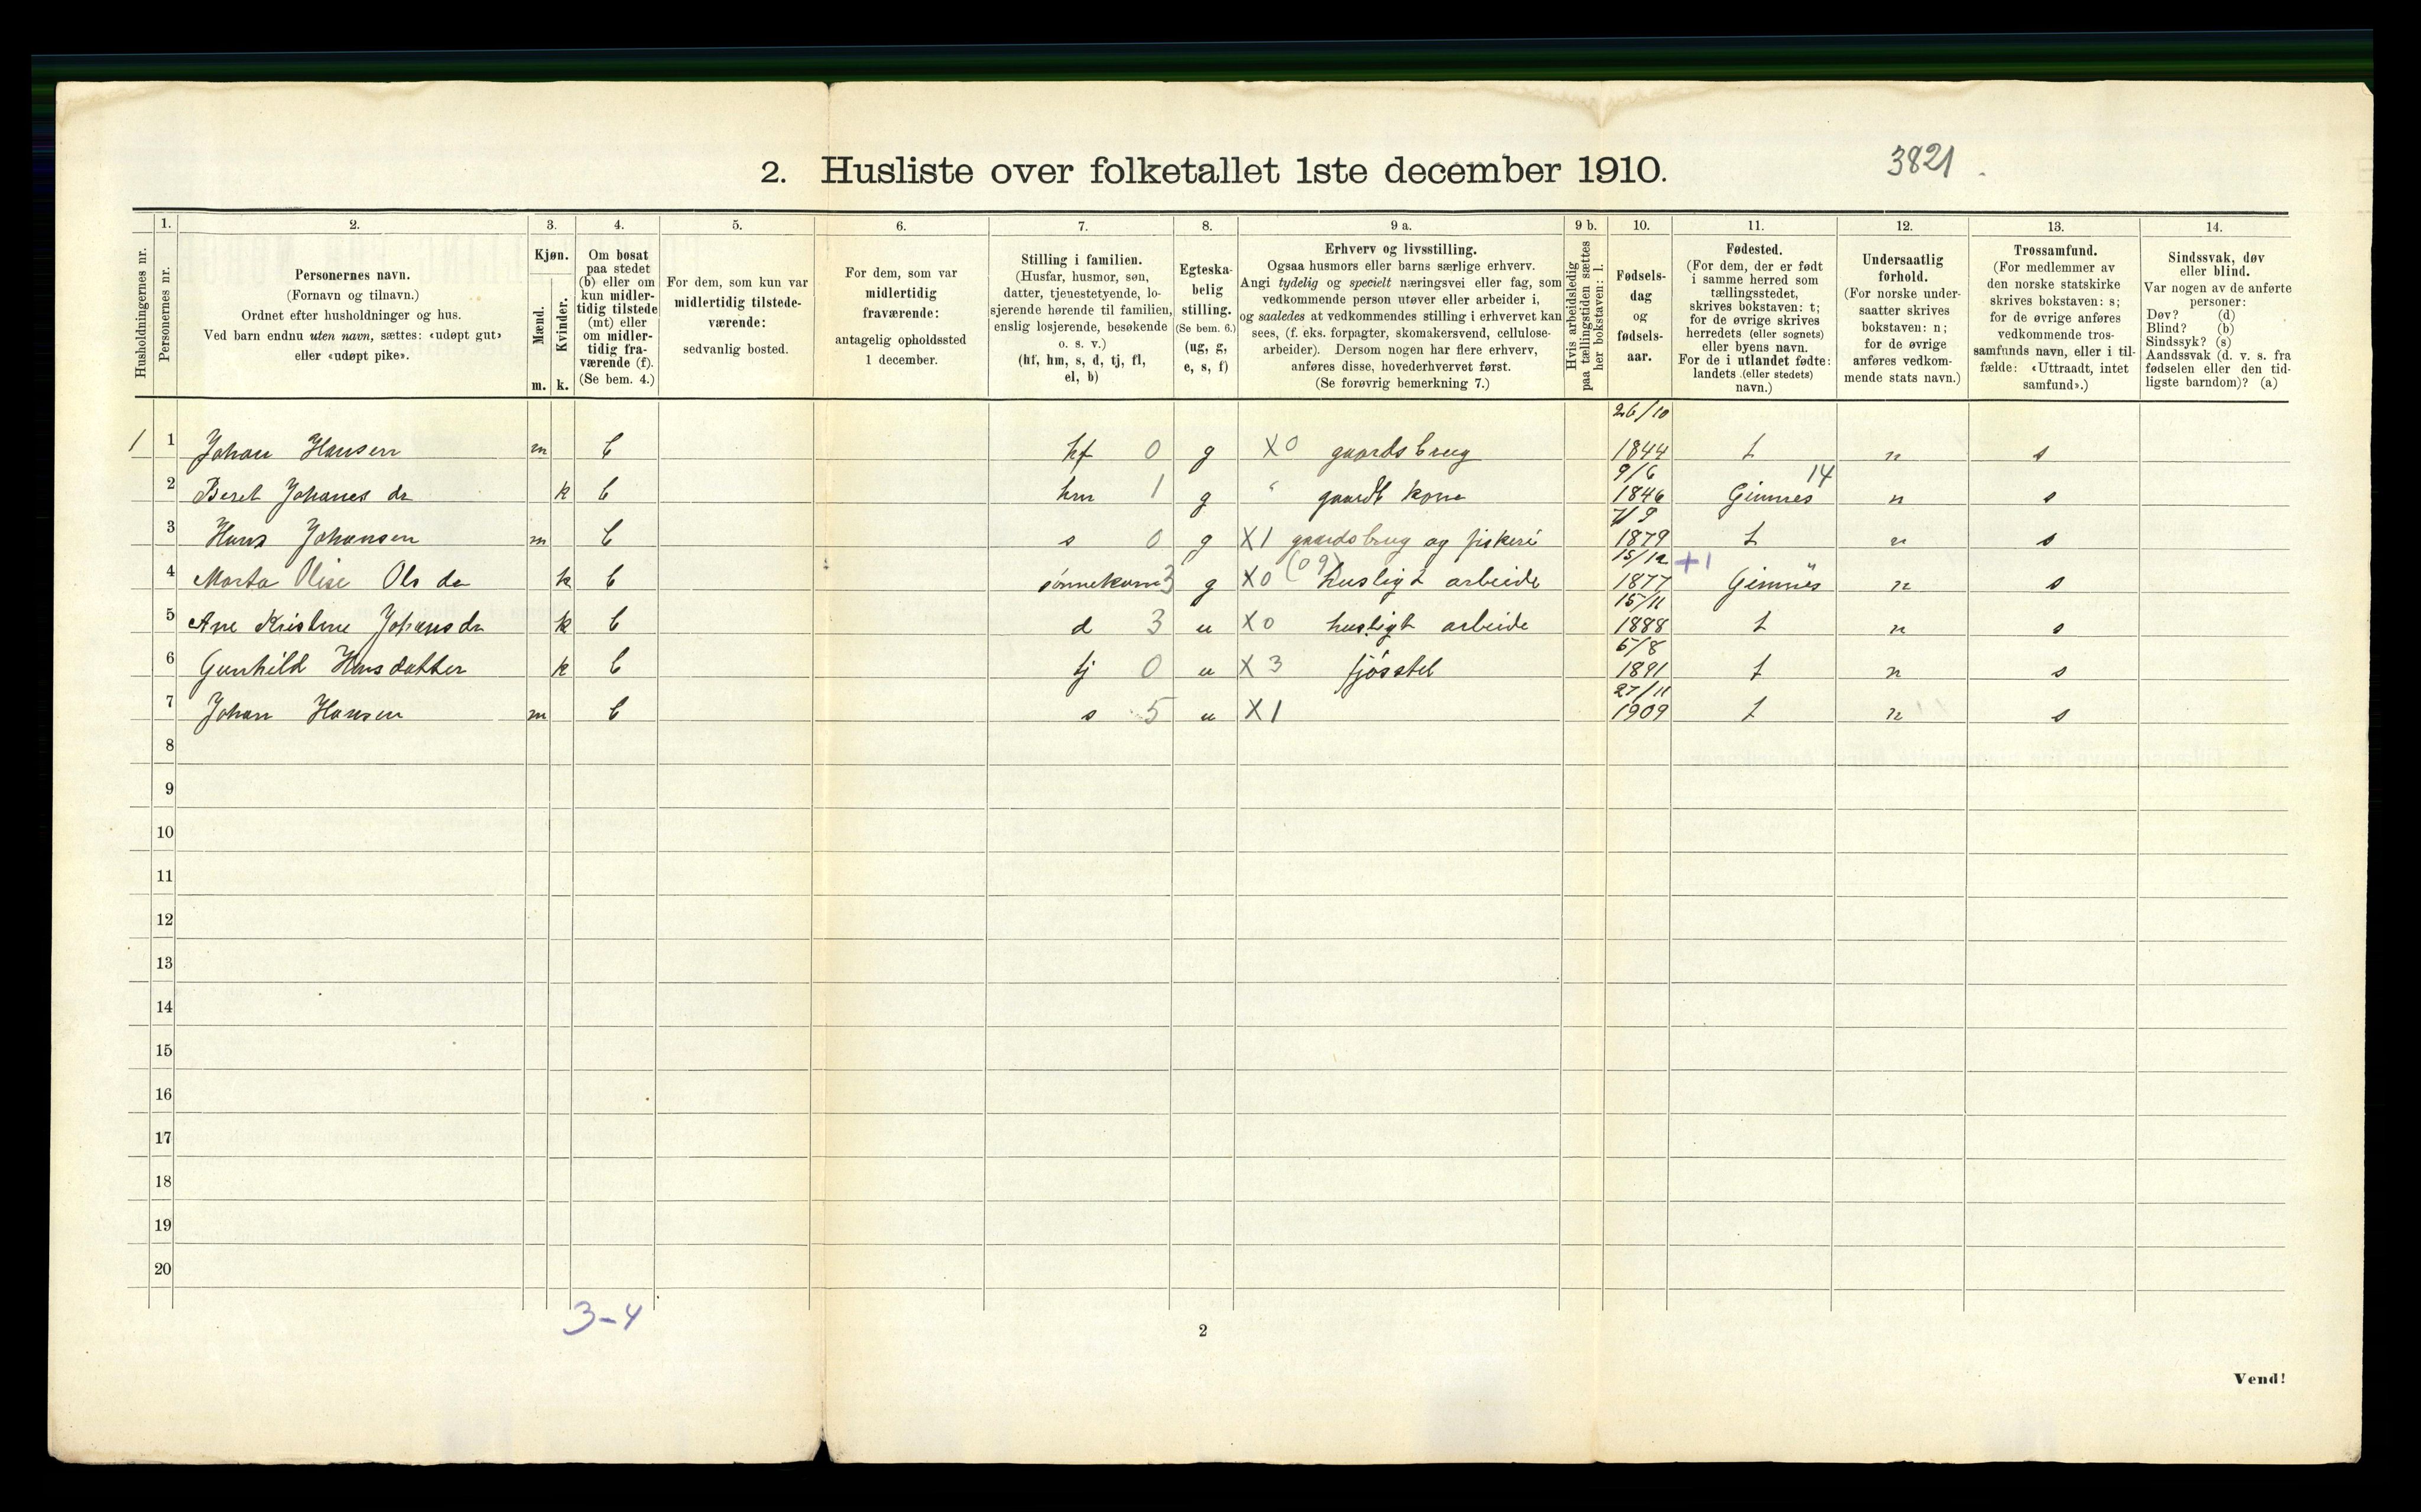 2. Husliste over folketallet 1ste december 1910.
3821
1. 2. 3. 4. 5. 6. 7. 8. 9 a. 9 b. 10. 11. 12. 13. 14.
Husholdningernes nr.
Personernes nr.
Personernes navn.
(Fornavn og tilnavn.)
Ordnet efter husholdninger og hus.
Ved barn endnu uten navn, sættes: «udøpt gut»
eller «udøpt pike».
Kjøn.
Mænd.
Kvinder.
m. k.
Om bosat
paa stedet
(b) eller om
kun midler-
tidig tilstede
(mt) eller
om midler-
tidig fra-
værende (f).
(Se bem. 4.)
For dem, som kun var
midlertidig tilstede-
værende:
sedvanlig bosted.
For dem, som var
midlertidig
fraværende:
antagelig opholdssted
1 december.
Stilling i familien.
(Husfar, husmor, søn,
datter, tjenestetyende, lo-
sjerende hørende til familien,
enslig losjerende, besøkende
o. s. v.)
(hf, hm, s, d, tj, fl,
el, b)
Egteska-
belig
stilling.
(Se bem. 6.)
(ug, g,
e, s, f)
Erhverv og livsstilling.
Ogsaa husmors eller barns særlige erhverv.
Angi tydelig og specielt næringsvei eller fag, som
vedkommende person utøver eller arbeider i,
og saaledes at vedkommendes stilling i erhvervet kan
sees, (f. eks. forpagter, skomakersvend, cellulose-
arbeider). Dersom nogen har flere erhverv,
anføres disse, hovederhvervet først.
(Se forøvrig bemerkning 7.)
Hvis arbeidsledig
paa tællingstiden sættes
her bokstaven: l.
Fødsels-
dag
og
fødsels-
aar.
Fødested.
(For dem, der er født
i samme herred som
tællingsstedet,
skrives bokstaven: t;
for de øvrige skrives
herredets (eller sognets)
eller byens navn.
For de i utlandet fødte:
landets (eller stedets)
navn.)
Undersaatlig
forhold.
(For norske under-
saatter skrives
bokstaven: n;
for de øvrige
anføres vedkom-
mende stats navn.)
Trossamfund.
(For medlemmer av
den norske statskirke
skrives bokstaven: s;
for de øvrige anføres
vedkommende tros-
samfunds navn, eller i til-
fælde: «Uttraadt, intet
samfund».)
Sindssvak, døv
eller blind.
Var nogen av de anførte
personer:
Døv? (d)
Blind? (b)
Sindssyk? (s)
Aandssvak (d. v. s. fra
fødselen eller den tid-
ligste barndom)? (a)
1 1 Johan Hansen m b hf 0 g X0 gaardsbrug 26/10 1844 t n s
2 Beret Johanes dr k b hm 1 g " gaardb kone 9/6 1846 Gimnes 14 n s
3 Hans Johansen m b s 0 g X1 gaardsbrug og fiskeri 1879 t n s
4 Marta Olise Ols da k b sønnekone 3 g X0 (09) husligt arbeide 15/12 1877 +1 Gimnes n s
5 Ane Kristine Johansdr k b d 3 u X0 husligt arbeide 15/11 1888 t n s
6 Gunhild Hansdatter k b tj 0 u X3 fjösstel 5/8 1891 t n s
7 Johan Hansen m b s 5 u X1 27/11 1909 t n s
8
9
10
11
12
13
14
15
16
17
18
19
20
3-4
2
Vend!